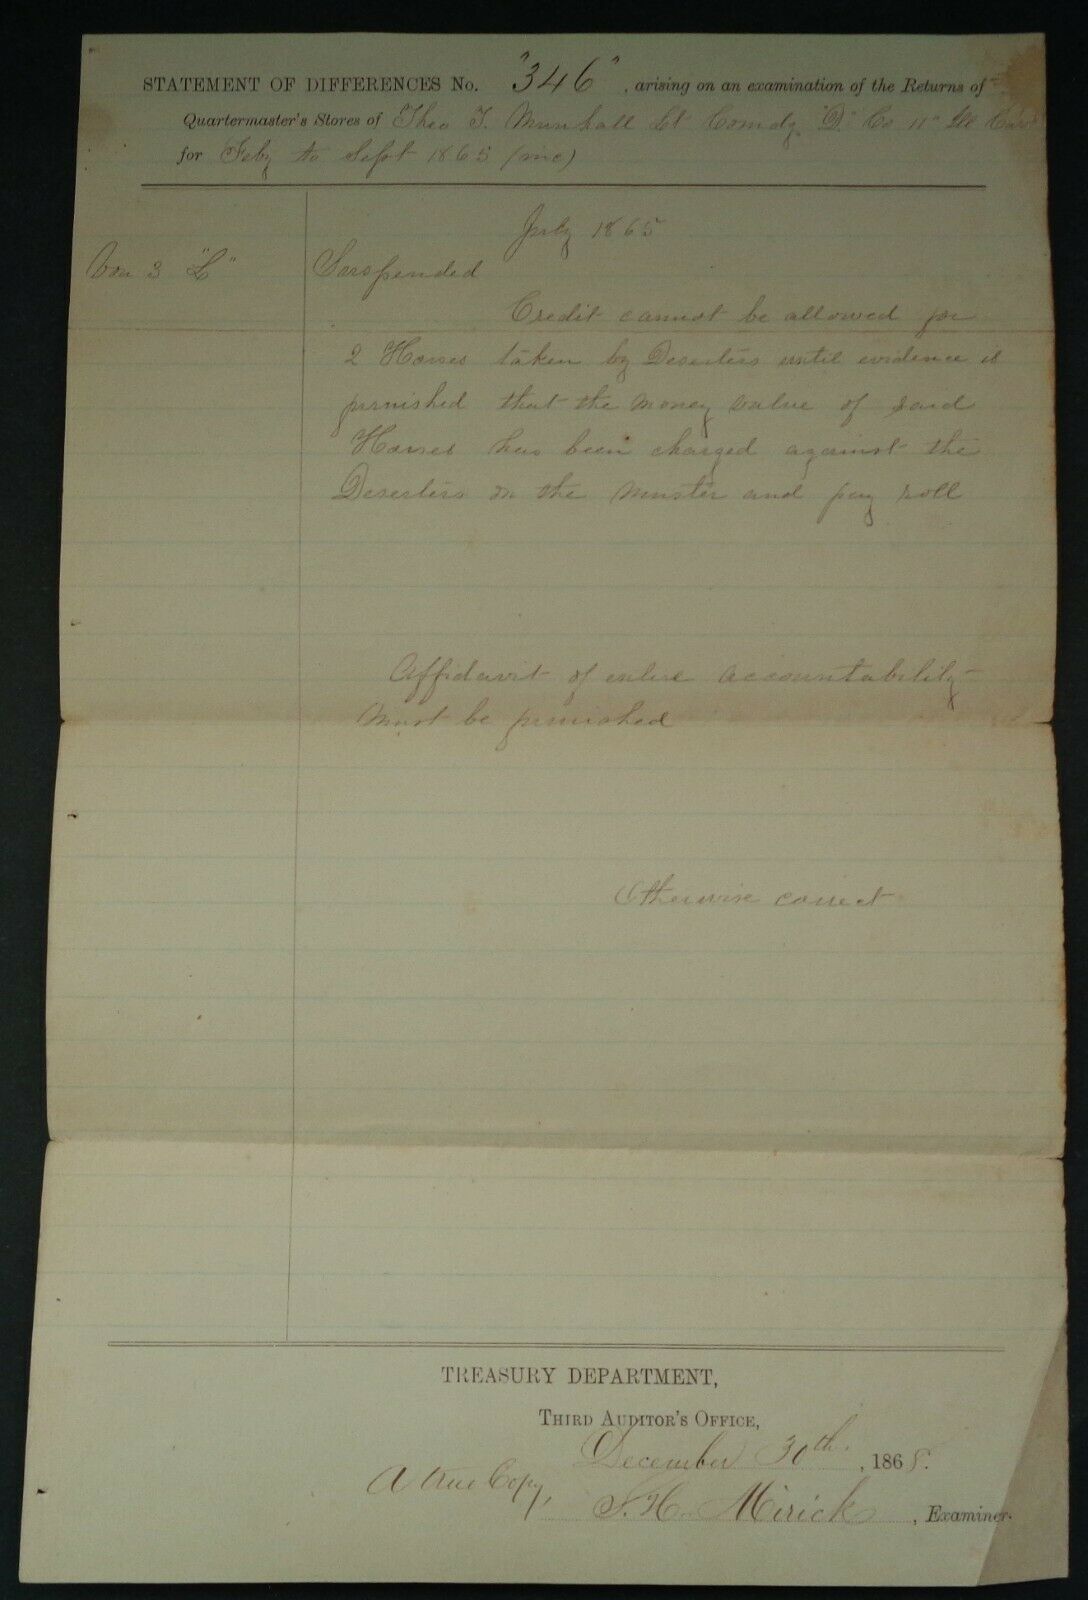 STATEMENT OF DIFFERENCES No. "346", arising on an examination of the Returns of
Quartermaster's Stores of Theo T. Munhall Lt Comdg "D" Co 11" Ill Cav
for Feby to Sept 1865 (inc)
July 1865
Vou 3 "L" Suspended
Credit cannot be allowed for
2 Horses taken by Deserters until evidence is
furnished that the money value of said
Horses has been charged against the
Deserters on the muster and pay roll
Affidavit of entire accountability
Must be furnished
Otherwise correct
TREASURY DEPARTMENT,
THIRD AUDITOR'S OFFICE,
December 30th, 1868.
A true Copy,
S. H. Mirick, Examiner.